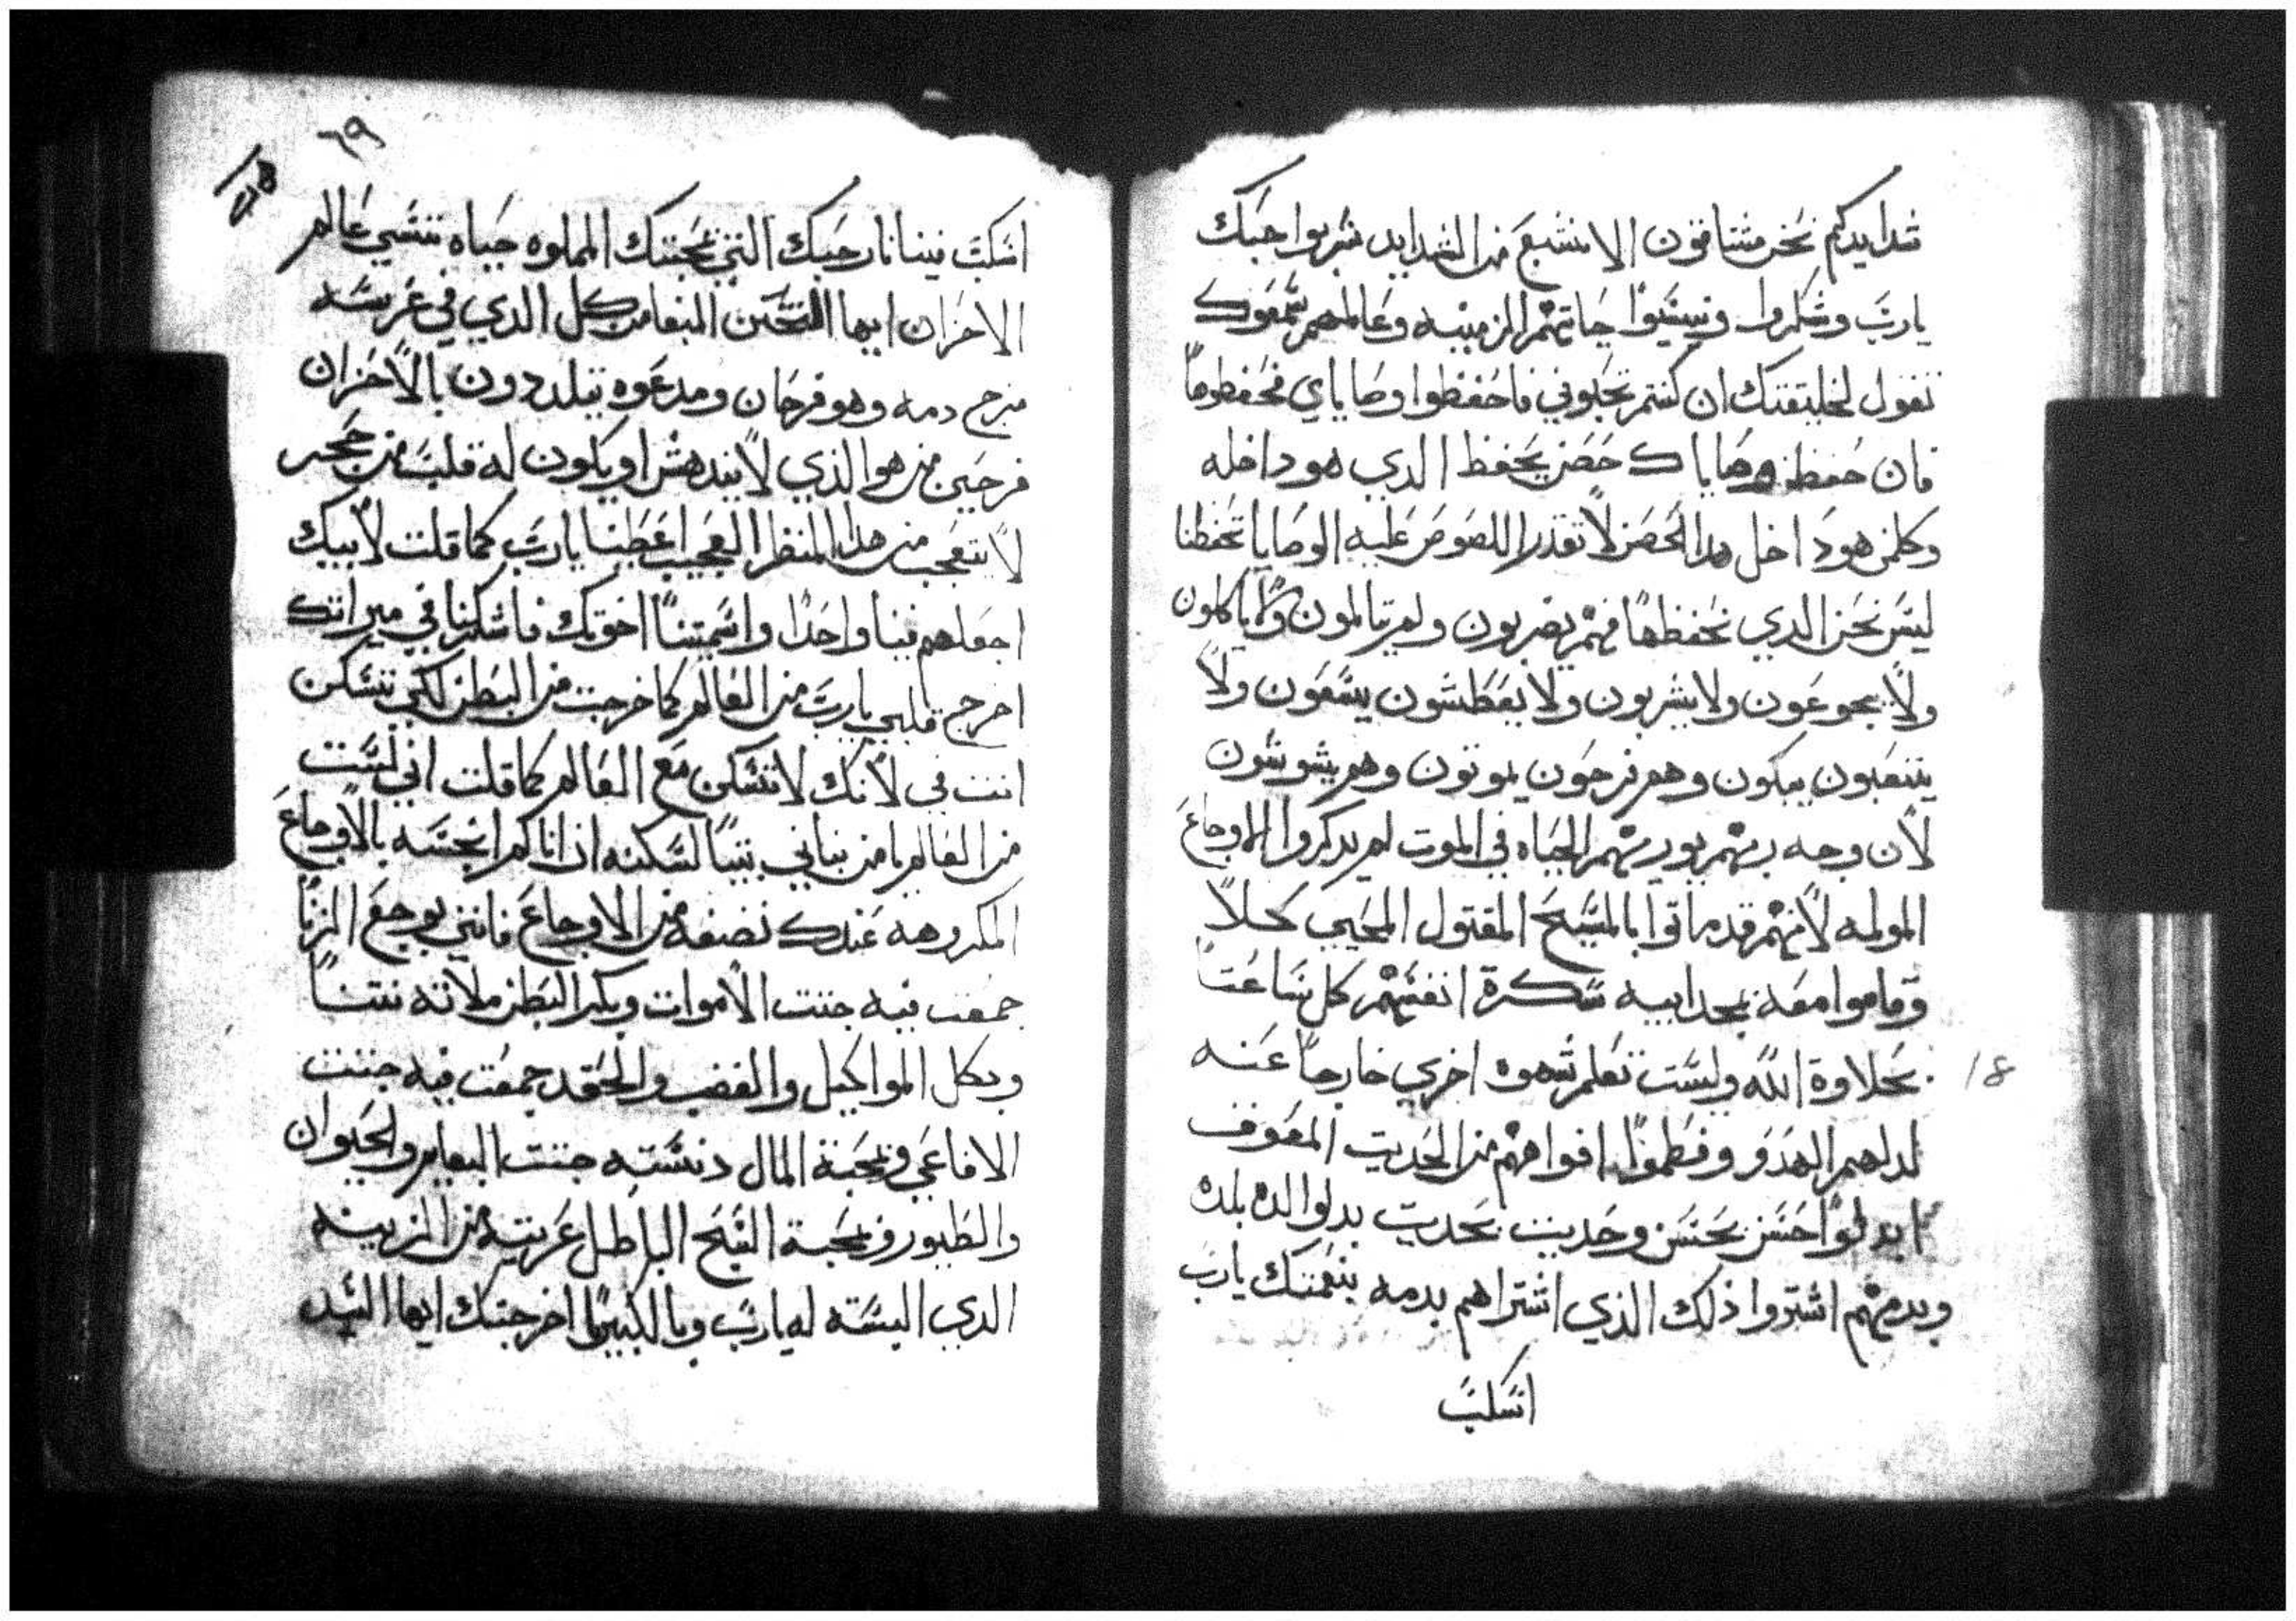 شدايدكم نحن مشتاقون الا نشبع من الشدايد شربوا حبك
يارب وشكروا ونسيوا حياتهم الزمنيه وعالمهم سمعوك
تقول لخليقتك ان كنتم تحبوني فاحفظوا وصاياي فحفظوها
فان حفظ وصاياك حصن يحفظ الدي هو داخله
وكلمن هو داخل هدا الحصن لا تقدر اللصوص عليه الوصايا تحفظنا
ليس نحن الدي نحفظها فهم يضربون ولم يتالمون ولا ياكلون
ولا يجوعون ولا يشربون ولا يعطشون يسعون ولا
يتعبون يبكون وهم فرحون يموتون وهم يشوشون
لان وجه ربهم يوريهم الحياه في الموت لم يدكروا الاوجاع
المولمه لانهم قد ماتوا بالمسيح المقتول المحيي كلاً
وقاموا معه بمجد ابيه سكرة انفسهم كل ساعتاً
بحلاوة الله وليست تعلم شهوه اخري خارجاً عنه
18
لدلهم الهدو وفطموا افواههم من الحديت المعوف
ابدلوا حسن بحسن وحديت بحديت بدلوا لده بلده
وبدمهم اشتروا ذلك الذي اشتراهم بدمه بنعمتك يارب
اسكب
٦٩
اسكب فينا نار حبك التي بمحبتك المملوه حياه ننسي عالم
الاحزان ايها المتحنن المبغا من كل الدي في عرسه
مزج دمه وهو فرحان ومدعوه يتلددون بالاحزان
فرحين من هو الذي لا يندهش او يكون له قلب من حجر
لا يتعجب من هدا المنظر العجيب اعطينا يارب كما قلت لابيك
اجعلهم فينا واحدا واسميتنا اخوتك فاشركنا في ميراتك
اخرج قلبي يارب من العالم كما خرجت من البطن لكي تسكن
انت في لانك لا تسكن مع العالم كما قلت اني لست
من العالم يا من بناني بيتاً لسكنه ان انا كم انجسه بالاوجاع
المكروهه عندك نضفه من الاوجاع فانني بوجع الزنا
جمعت فيه جتت الاموات وبكبر البطن ملاته نتناً
وبكل المواكيل والغضب والحقد جمعت فيه جتت
الافاعي وبمحبة المال دنسته جتت البهايم والحيوان
والطيور وبمحبة السبح الباطل عريته من الزينه
الدي البسته له يارب وبالكبريا اخرجتك ايها السيد